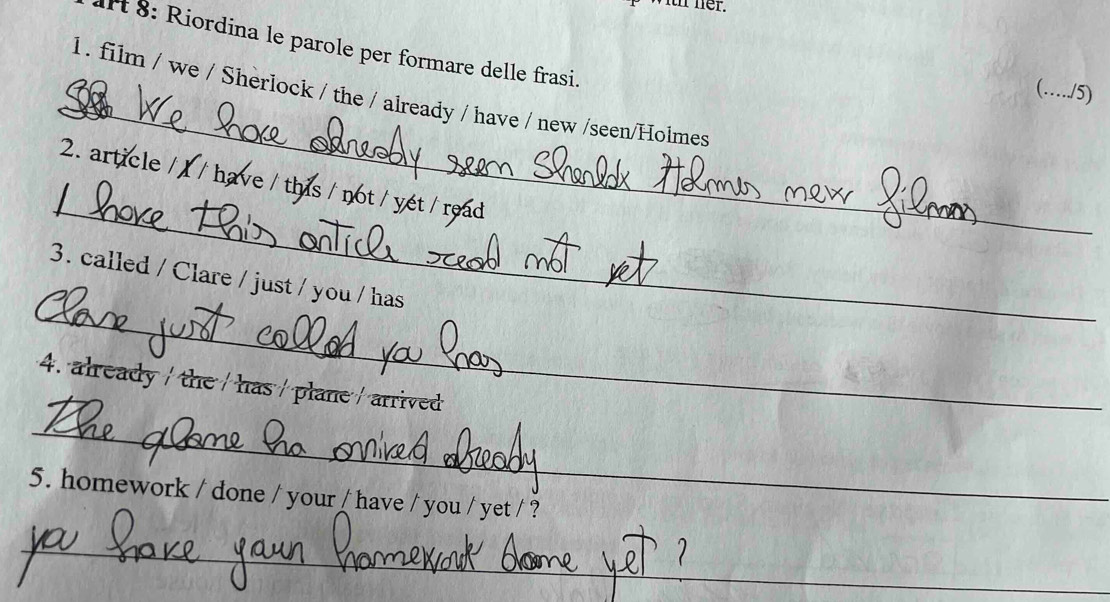 with her.
Part 8: Riordina le parole per formare delle frasi.
(…../5)
1. film / we / Sherlock / the / already / have / new /seen/Holmes
We have already seen Sherlok Holmes new film
2. article / I / have / this / not / yet / read
I have this article read not yet
3. called / Clare / just / you / has
Clare just called you has
4. already / the / has / plane / arrived
The plane ha arrived already
5. homework / done / your / have / you / yet / ?
you have your homework done yet ?